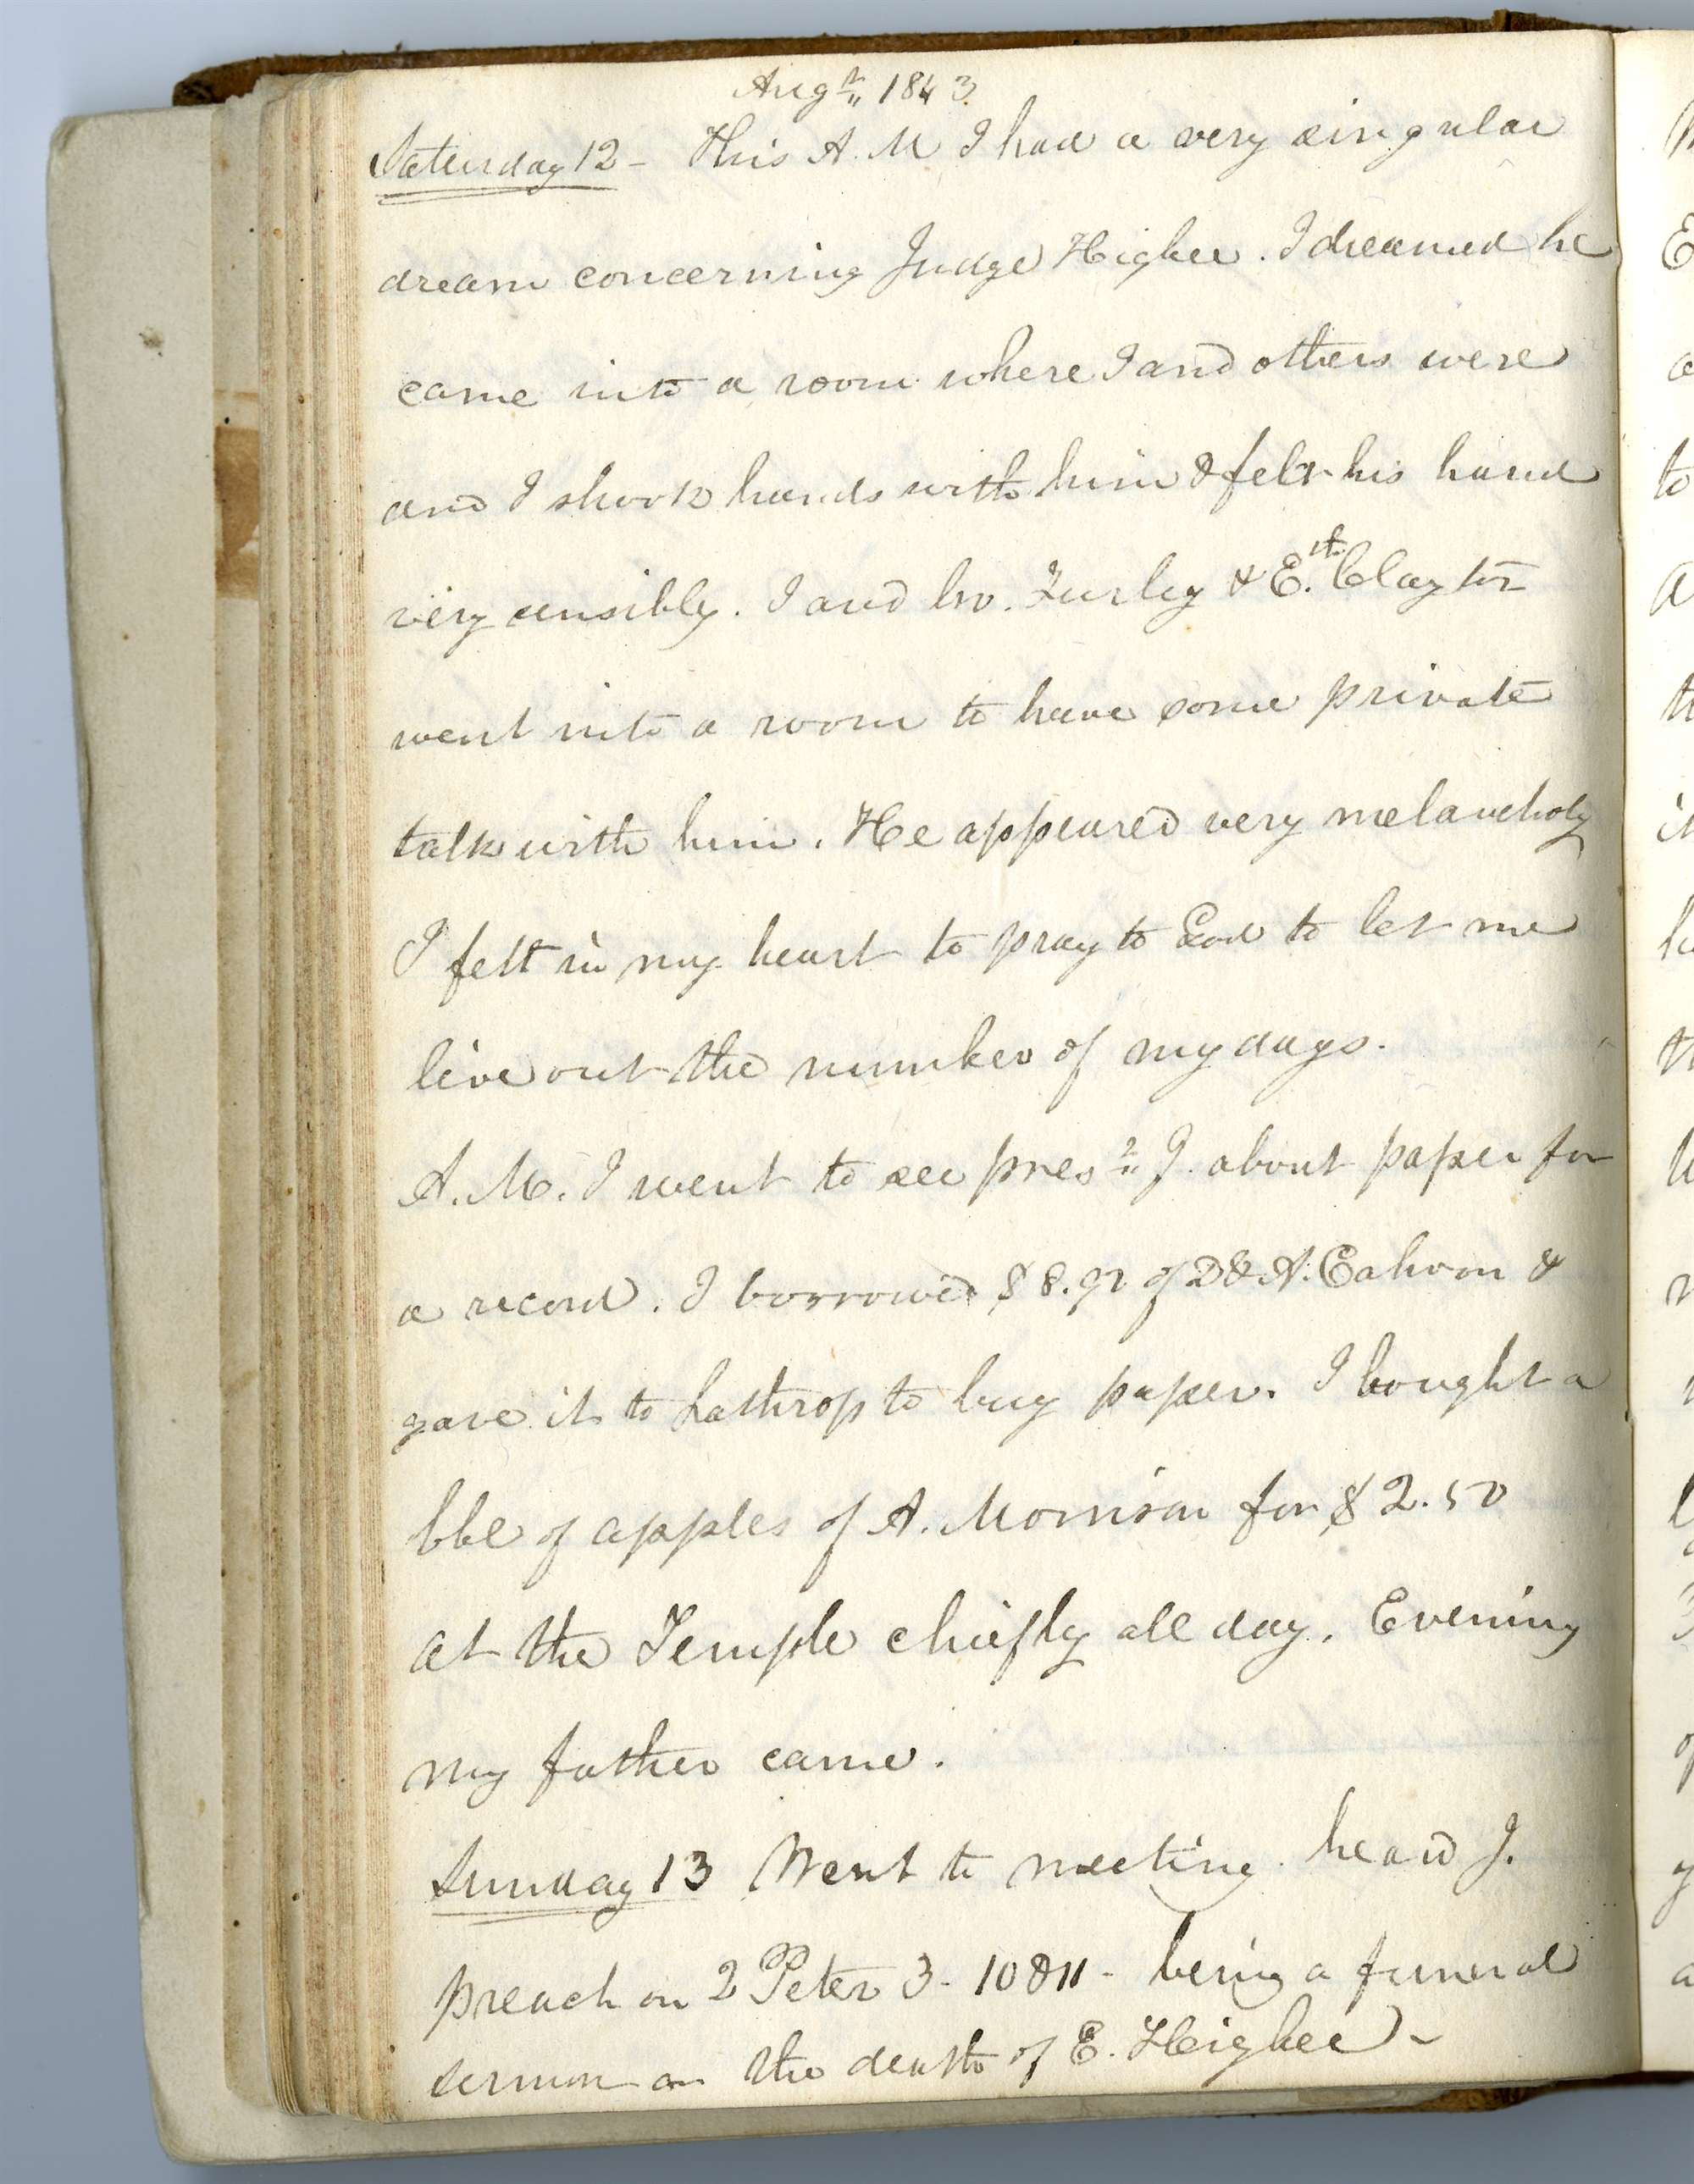 Augt 1843
Saturday 12 - This A. M I had a very singular
dream concerning Judge Higbee. I dreamed he
came into a room where I and others were
and I shook hands with him & felt his hand
very sensibly. I and bro. Turley & E. Clayton
went into a room to have some private
talk with him. He appeared very melancholy
I felt in my heart to pray to God to let me
live out the number of my days.
A. M. I went to see prest J. about paper for
a record. I borrowed $8. of D & A. Cahoon &
gave it to Lathrop to buy paper. I bought a
bbl of apples of A. Morrison for $2.50
at the Temple chiefly all day. Evening
my father came.
Sunday 13 Went to meeting. heard J.
preach on 2 Peter 3- 10 & 11 - being a funeral
sermon on the death of E. Higbee -